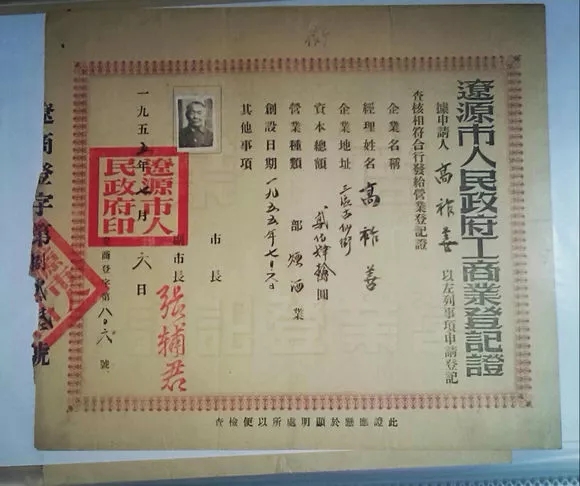 遼源市人民政府工商業登記證
據申請人 高祚善 以左列事項申請登記
查核相符合行發給營業登記證
企業名稱
經理姓名 高祚善
企業地址 三區
資本總額 圓
營業種類 部 煙酒 業
創設日期 一九五五年七月六日
其他事項
市長
副市長 張輔君
一九五 年 月 六日
商登字第八〇六號
遼源市人民政府印
遼商登字第 號
此證應懸於顯明處所以便檢查